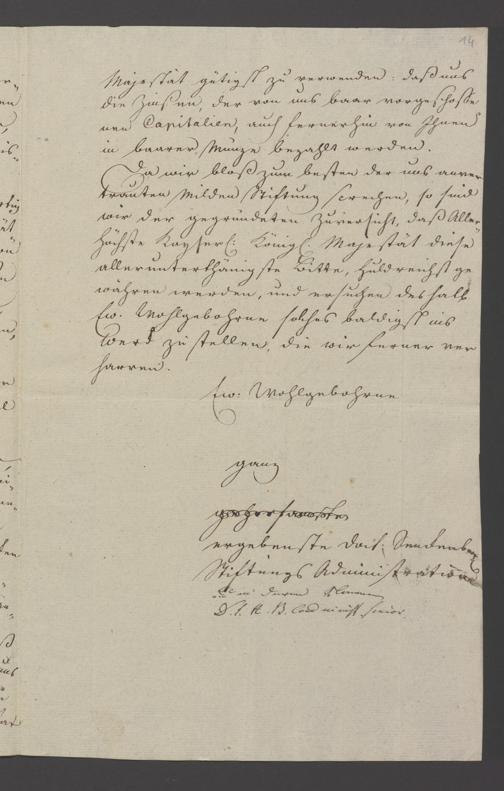 14
Majestät gütigst zu verwenden: daß uns
die Zinßen, der von uns baar vorgeschosse
nen Capitalien, auch fernerhin von Ihnen
in baarer Münze bezahlt werden.
Da wir bloß zum besten der uns anver
trauten milden Stiftung sprechen, so sind
wir der gegründeten Zuversicht, daß Aller
höchste Kayserl: Königl: Majestät diese
allerunterthänigste Bitte, huldreichst ge
währen werden, und ersuchen deshalb
Ew. Wohlgebohrne solches baldigst ins
Werck zu stellen, die wir ferner ver
harren.
Ew: Wohlgebohrne
ganz
gehorsamste
ergebenste Doct: Senckenberg
Stiftungs Administration
in deren Namen
senior